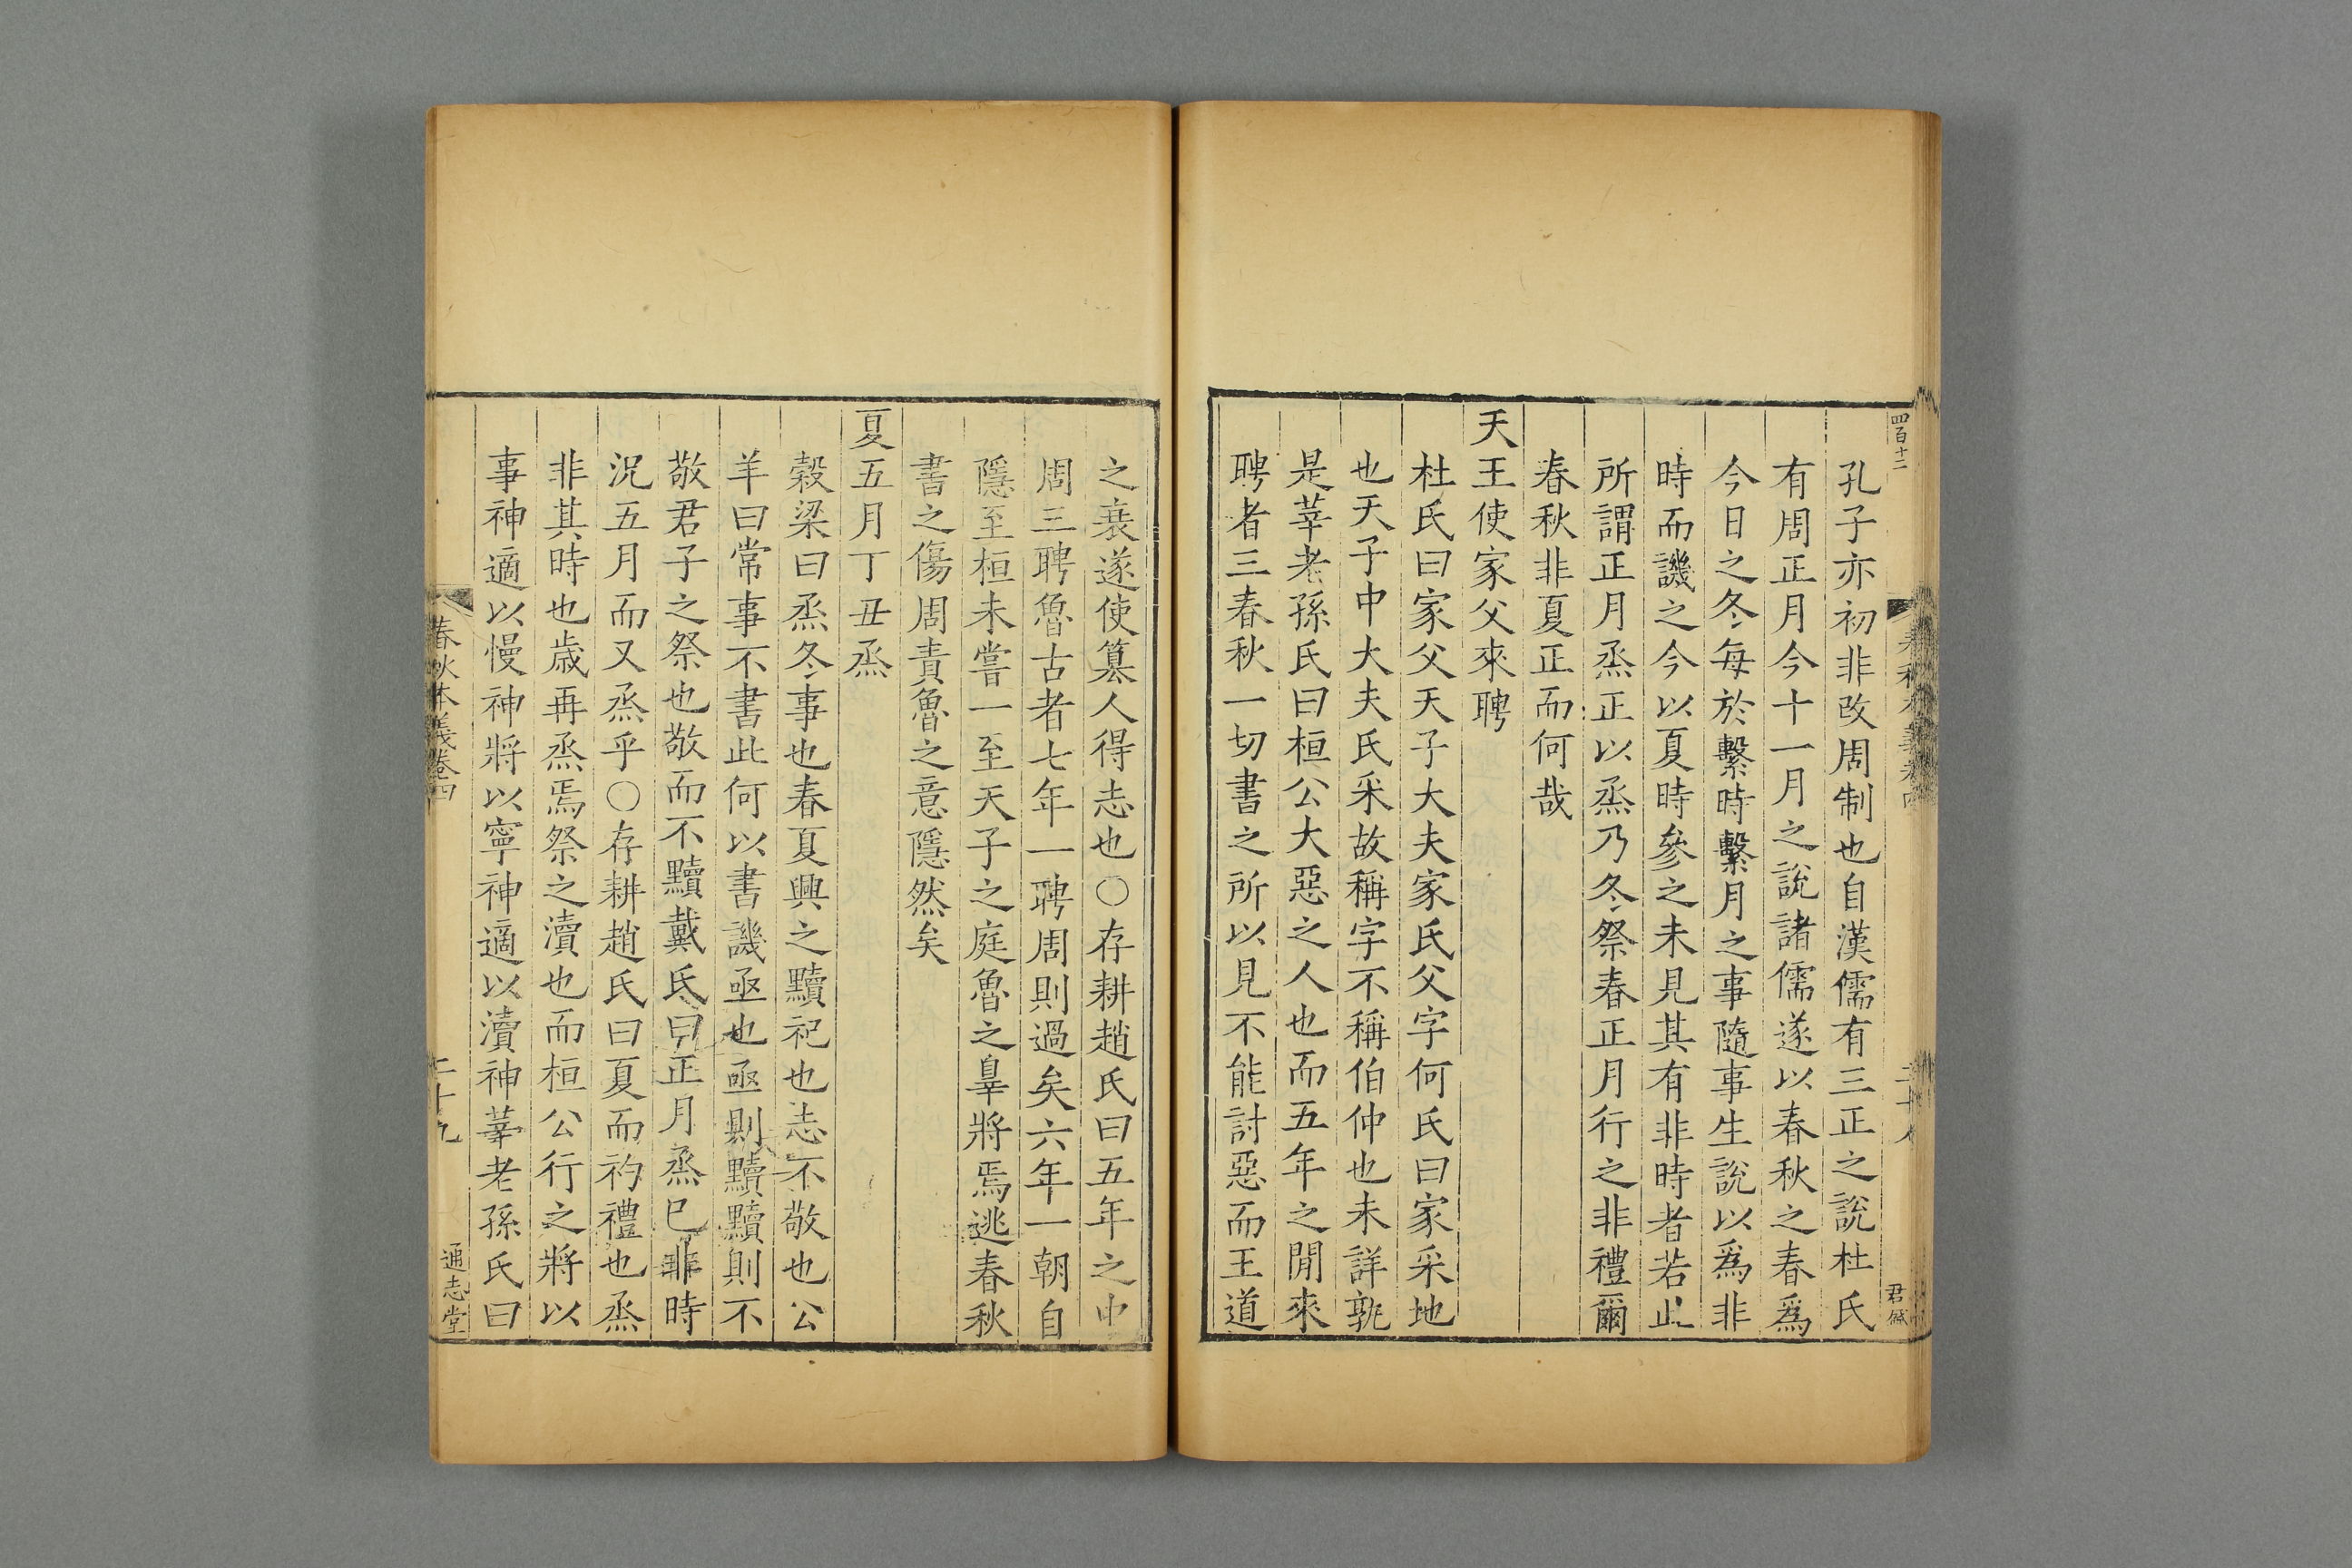 四百十二
孔子亦初非改周制也自漢儒有三正之說杜氏
有周正月今十一月之說諸儒遂以春秋之春爲
今日之冬每於繫時繫月之事隨事生說以爲非
時而譏之今以夏時參之未見其有非時者若此
所謂正月烝正以烝乃冬祭春正月行之非禮爾
春秋非夏正而何哉
天王使家父來聘
杜氏曰家父天子大夫家氏父字何氏曰家采地
也天子中大夫氏采故稱字不稱伯仲也未詳孰
是莘老孫氏曰桓公大惡之人也而五年之閒來
聘者三春秋一切書之所以見不能討惡而王道
之衰遂使篡人得志也○存耕趙氏曰五年之中
周三聘魯古者七年一聘周則過矣六年一朝自
隱至桓未嘗一至天子之庭魯之辠將焉逃春秋
書之傷周責魯之意隱然矣
夏五月丁丑烝
穀梁曰烝冬事也春夏興之黷祀也志不敬也公
羊曰常事不書此何以書譏亟也亟則黷黷則不
敬君子之祭也敬而不黷戴氏曰正月烝已非時
況五月而又烝乎○存耕趙氏曰夏而礿禮也烝
非其時也歲再烝焉祭之瀆也而桓公行之將以
事神適以慢神將以寧神適以瀆神莘老孫氏曰
春秋本義卷四
二十九
通志堂